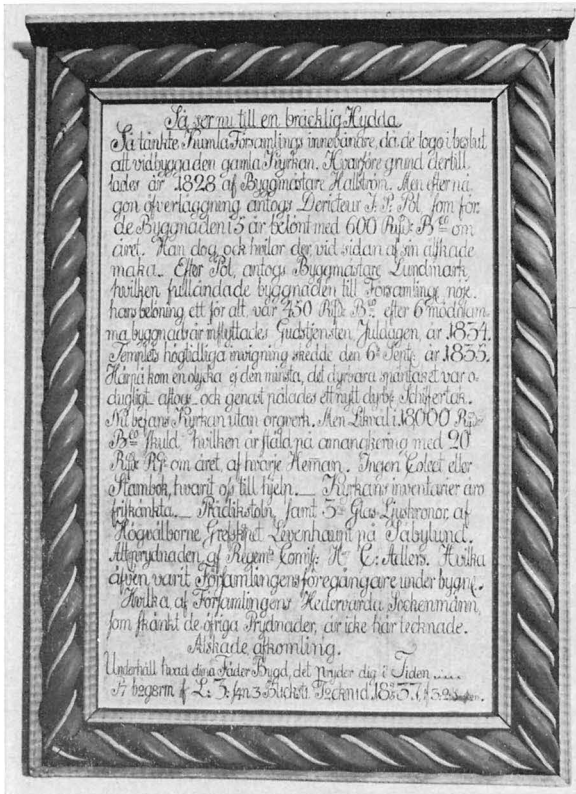 Så ser nu till en bräcklig Hydda
Så tänkte Kumla Församlings innebånare, då de togo i beslut
att vidbygga den gamla Kyrkan. Hvarföre grund dertill
lades år 1828 af Byggmästare Hallström. Men efter nå-
gon öfverläggning antogs Dericteur J. P. Pol, som för-
de Byggnaden i 5 år belönt med 600 Rgsd: Bco om
året. Han dog, och hvilar der vid sidan af sin älskade
maka. Efter Pol, antogs Byggmästare Lundmark,
hvilken fulländade byggnaden till Församlings nöje.
hans belöning ett för alt var 450 Rgsd: Bco. efter 6 mödosam-
ma byggnads år inflyttades Gudstjensten Juldagen, år 1834.
Templets högtidliga invigning skedde den 6te Sept: år 1835.
Härpå kom en olycka ej den minsta, det dyrbara spåntaket var o-
dugligt aftogs och genast pålades ett nytt dyrbt Schifertak.
Nu bejans Kyrkan utan orgverk. Men Likväl i 18000 Rgsd:
Bco skuld: hvilken är stäld på amangkering med 20
Rgsd: Rgs om året, af hvarje Hemman. Ingen Colect eller
Stambok, hvarit oss till hjeln. Kyrkans inventarier äro
friskänkta. Prädikstoln, samt 5 Glas Ljuskronor, af
Högvälborne Grefskinet Levenhaumt på Säbylund.
Altarprydnaden af Regemts Comiss: Hr C: Adlers. Hvilka
äfven varit Församlingens föregångare under bygnc.
Hvilka af Församlingens Hedervärda Sockenmänn,
som skänkt de öfriga Prydnader, är icke här tecknade.
Älskade afkomling.
Underhåll hvad dina Fäder Bygd, det pryder dig i Tiden